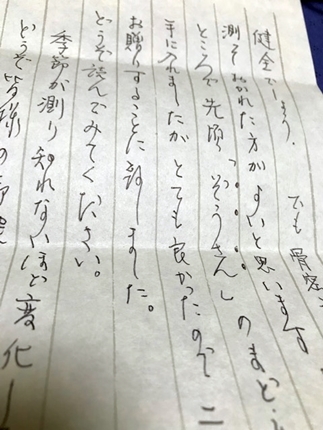 健全でしょう。でも骨密
測ておかれた方がよいと思います
ところで先頃「ぞうさん」のまど
手に入れましたがとても良かったので二
お贈りすることに致しました。
どうぞ読んでみてください。
季節が測り知れないほど変化し
どうぞ皆様の